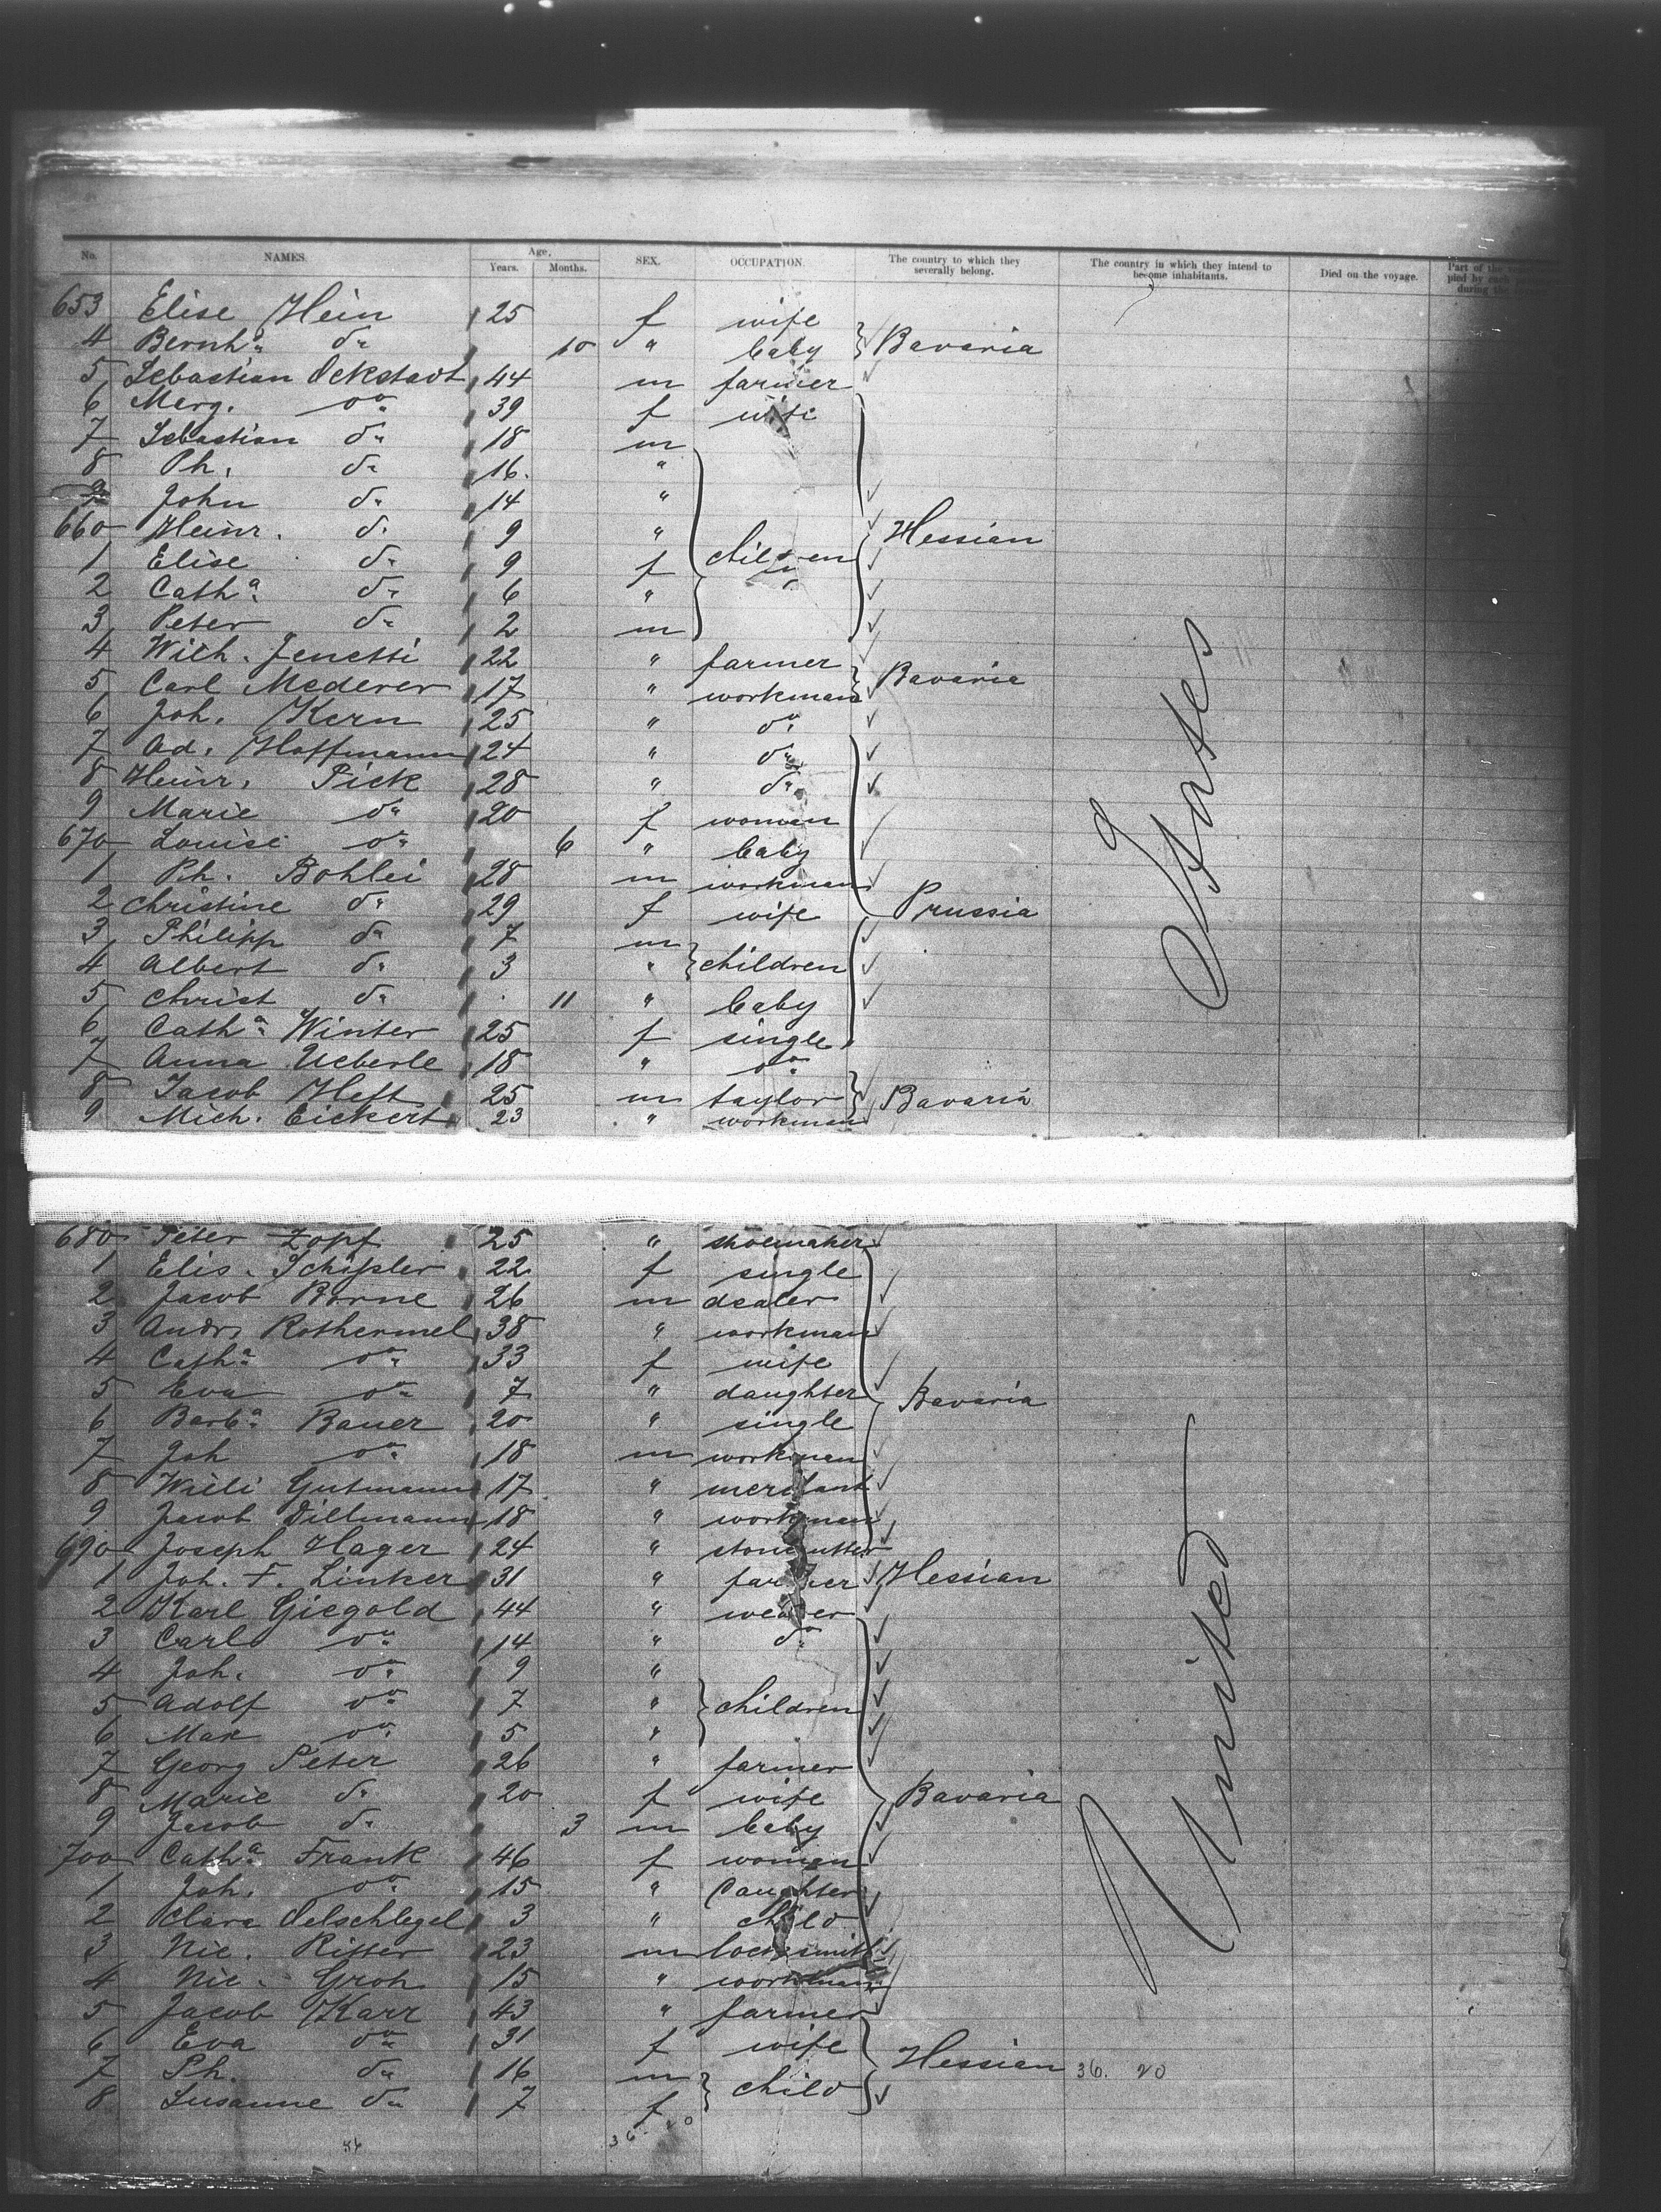 No. NAMES. Age, Years. Months. SEX. OCCUPATION. The country to which they severally belong. The country in which they intend to become inhabitants. Died on the voyage. Part of the
653 Elise Hein 25 f wife
4 Bernhᵃ dº 10 " baby Bavaria
5 Sebastian Ockstadt 44 m farmer
6 Marg. dº 39 f wife
7 Sebastian dº 18 m
8 Ph. dº 16 "
9 John dº 14 "
660 Heinr. dº 9 " Hessian
1 Elise dº 9 f children
2 Cathᵃ dº 6 "
3 Peter dº 2 m
4 Wilh. Jenetti 22 " farmer
5 Carl Mederer 17 " workman Bavaria
6 Joh. Kern 25 " dº
7 Ad. Hoffmann 24 " dº
8 Heinr. Pick 28 " dº
9 Marie dº 20 f woman
670 Louise dº 6 " baby
1 Ph. Bohlei 28 m workman
2 Christine dº 29 f wife Prussia
3 Philipp dº 7 m
4 Albert dº 3 " children
5 Christ dº 11 " baby
6 Cathᵃ Winter 25 f single
7 Anna Ueberle 18 " dº
8 Jacob Heft 25 m taylor Bavaria
9 Mich. Eickert 23 " workman
680 Peter Zopf 25 " shoemaker
1 Elis. Schissler 22 f single
2 Jacob Borne 26 m dealer
3 Andr. Rothermel 38 " workman
4 Cathᵃ dº 33 f wife
5 Eva dº 7 " daughter Bavaria
6 Barbᵃ Bauer 20 " single
7 Joh dº 18 m workman
8 Willi Gutmann 17 " merchant
9 Jacob Dillmann 18 " workman
690 Joseph Hager 24 " stonecutter
1 Joh. F. Linker 31 " farmer Hessian
2 Karl Giegold 44 " weaver
3 Carl dº 14 " dº
4 Joh. dº 9 "
5 Adolf dº 7 " children
6 Max dº 5 "
7 Georg Peter 26 " farmer
8 Marie dº 20 f wife Bavaria
9 Jacob dº 3 m baby
700 Cathᵃ Frank 46 f woman
1 Joh. dº 15 " daughter
2 Clara Oelschlegel 3 " child
3 Nic. Ritter 23 m locksmith
4 Nic. Groh 15 " workman
5 Jacob Karr 43 " farmer
6 Eva dº 31 f wife
7 Ph. dº 16 m child Hessian 36. 20
8 Susanne dº 7 f
36 20
United States